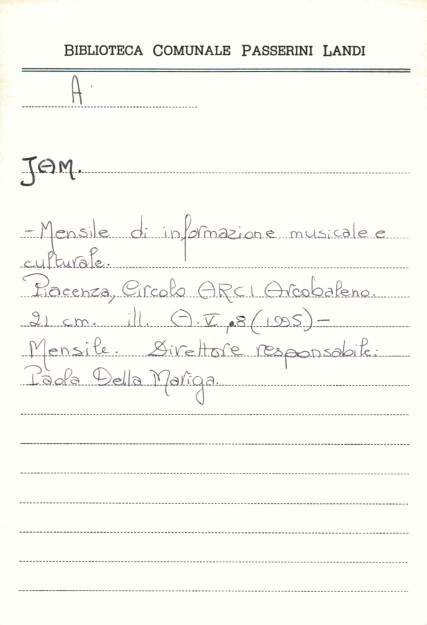 BIBLIOTECA COMUNALE PASSERINI LANDI
A
JAM.
- Mensile di informazione musicale e
culturale.
Piacenza, Circolo ARCI Arcobaleno.
21 cm. ill. A.V, 8 (1995) -
Mensile. Direttore responsabile:
Paola Della Mariga.